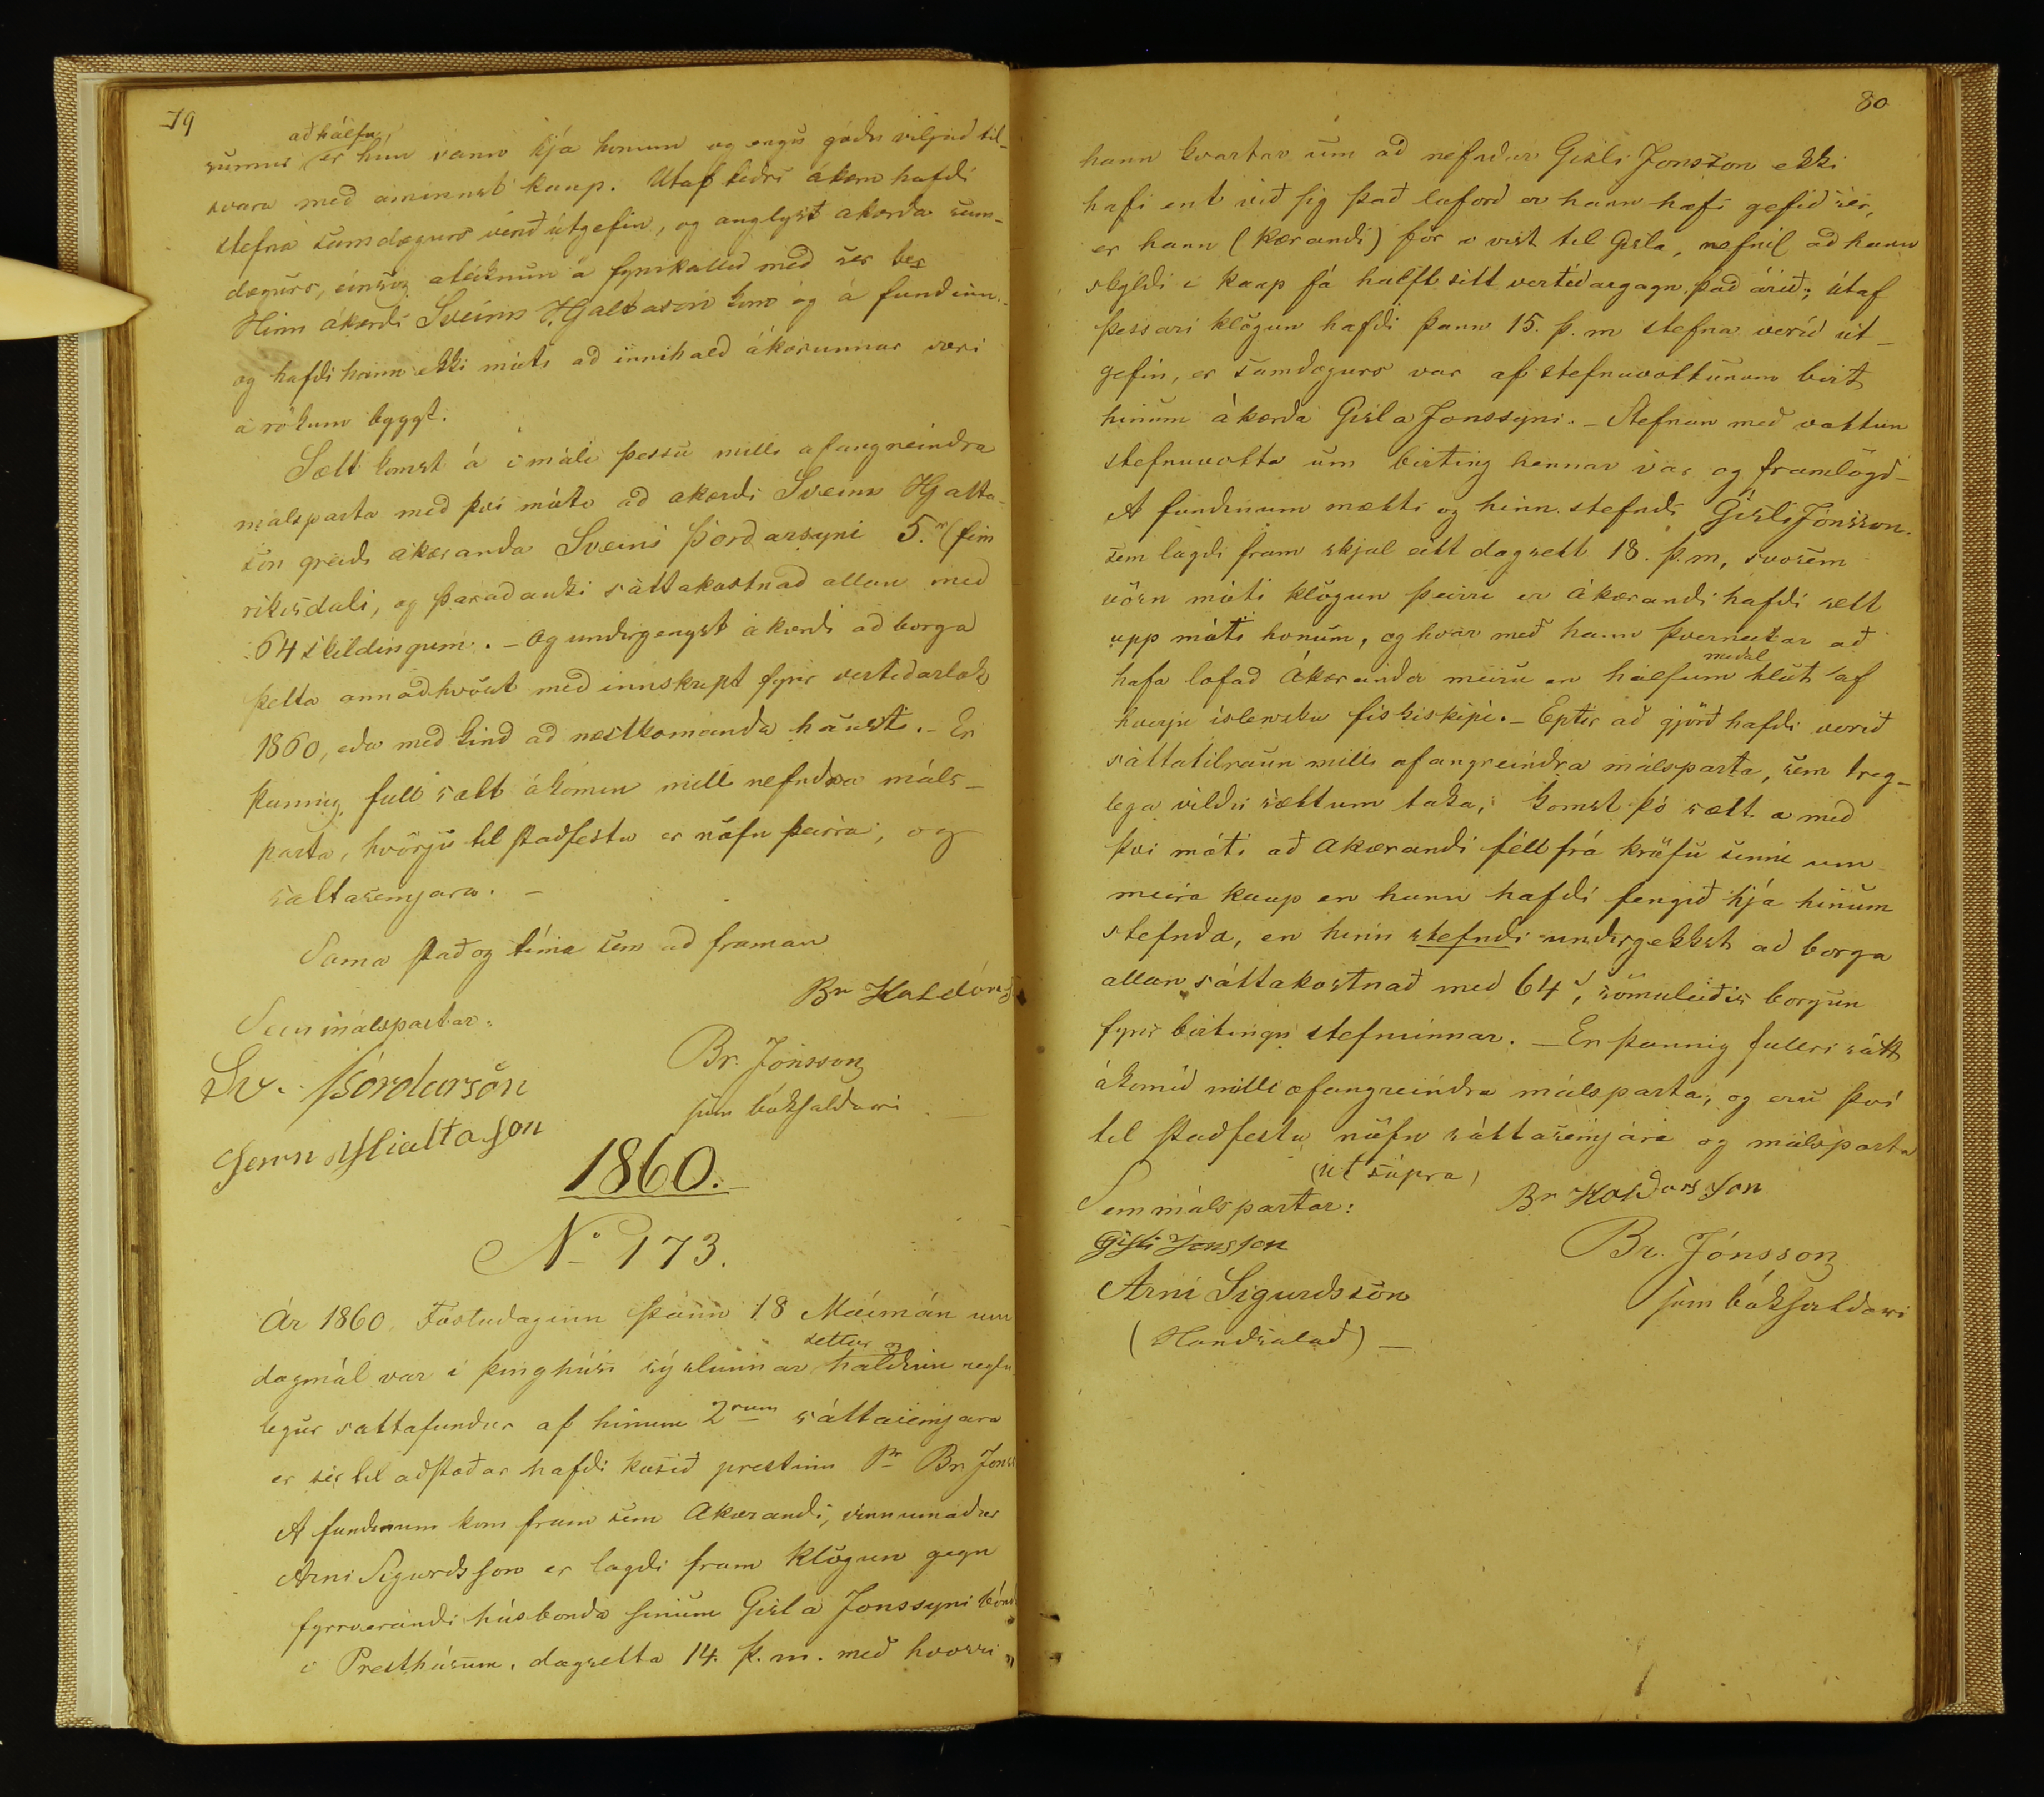 79
að hálfu
sumar er hún vann hjá honum og engu góðu viljað til-
svara með áminnst kaup. Útaf téðri ákæru hafði
stefna samdægurs verið útgefin, og auglyst akærða sam-
dægurs, einsog áteiknun á fyrirkallið með sér ber
Hinn ákærði Sveinn Hjaltason kom og á fundinn.
og hafði hann ekki móti að innihald ákærunnar væri
á rökum byggt.
Sætt komst á í máli þessu milli afangreindra
málsparta með því móti að akærði Sveinn Hjalta-
son greiði akæranda Sveini Þórðarsyni 5. (fim
ríkisdali, og þaraðauki sáttakostnað allan með
64 skildingum. - Og undirgengst ákærði að borga
þetta annaðhvört með innskript fyrir vertiðarlok
1860, eða með kind að næstkomanda hausti. - Er
þannig full sætt ákomin milli nefndra máls-
parta, hvörju til staðfestu er nöfn þeirra, og
sáttasemjara. -
Sama stað og tíma sem að framan
Br Haldórs
Sem málspartar:
Br. Jónsson
Sv. Þórdarsön
sem bókhaldari
Hialtason
1860.
No 173.
Ár 1860, Föstudaginn þann 18 Maímán um
settur og
dagmál var í þinghúsi sýslunnar haldinn reglu
legur sattafundur af hinum 2rum sáttasemjara
er sér til aðstoðar hafði kosið prestinn Sr Br. Jónss
A fundinum kom fram sem Akærandi, vinnumaður
Arni Sigurdsson er lagði fram klögun gegn
fyrrverandi húsbonda sinum Gisla Jonssyni bónd
i Presthúsum, dagsetta 14. þ. m. með hvorri
80
hann kvartar um að nefndur Gisli Jonsson ekki
hafi ent við sig það loforð er hann hafi gefið sér,
er hann (kærandi) fór í vist til Gisla, nefnil að hann
skyldi í kaup fá hálft sitt vertíðargagn það árið; útaf
þessari klögun hafði þann 15. þ. m stefna verið út-
gefin, er samdægurs var af stefnuvottunum birt
hinum ákærða Gisla Jonssyni. - Stefnan með vottun
stefnuvotta um birting hennar var og framlögð-
A fundinum mætti og hinn stefndi Gisli Jónsson.
sem lagði fram skjal eitt dagsett 18. þ. m, svosem
vörn móti klögun þeirri er ákærandi hafði sett
upp móti honum, og hvar með hann þverneitar að
meðal
hafa lofað Ákæranda meiru en hálfum hlut af
hverju íslensku fiskiskipi. - Eptir að gjörð hafði verið
sáttatilraun milli afangreindra málsparta, sem treg-
lega vildu sættum taka, komst þó sætt á með
því móti að Akærandi féll frá kröfu sinni um
meira kaup en hann hafði fengið hjá hinum
stefnda, en hinn stefndi undirgekkst að borga
allan sáttakostnað með 64, sömuleiðis borgun
fyrir birtingu stefnunnar. - Er þannig fulleri sátt
ákomið milli ofangreindra málsparta, og eru því
til staðfestu nöfn sáttasemjara og málsparta
(ut supra)
Sem málspartar:
Br Haldorsson
Gisli Jonsson
Br. Jónsson
Arni Sigurdssön
sem bókhaldari
(Handsalað) -